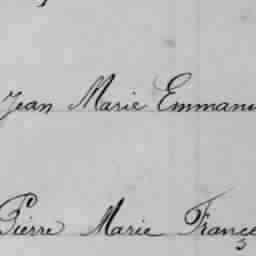 Jean Marie Emmanu
Pierre Marie Franç